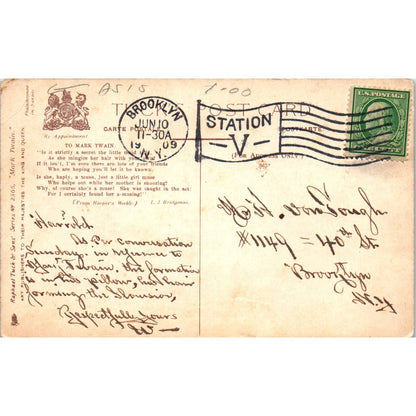 A515
1-00
POST CARD
CARTE POSTALE
By Appointment
BROOKLYN
JUN 10
11-30A
1909
N.Y.
STATION
V
U.S. POSTAGE
TO MARK TWAIN
"Is it strictly a secret the little maid
As she mingles her hair with your
If it isn't, I'm sure there are lots who'd
Who are hoping you'll let it be known.
Is she, haply, a tease, just a little girl
Who helps out while her mother is shooting?
Why, of course she's a muse! She was caught in the act:
For I certainly found her a-musing!"
(From Harper's Weekly.) L. J. Bridgman.
Raphael Tuck & Sons' Series No 2365, "Mark Twain."
ART PUBLISHERS TO THEIR MAJESTIES THE KING AND QUEEN.
Harrold.
As Per conversation
Sunday, in reference to
Mark Twain, the formation
is in his pillow, and hair
forming the illusion,
Respectfully Yours
W
H. W.
#1149 = 40th St
Brooklyn
N.Y.